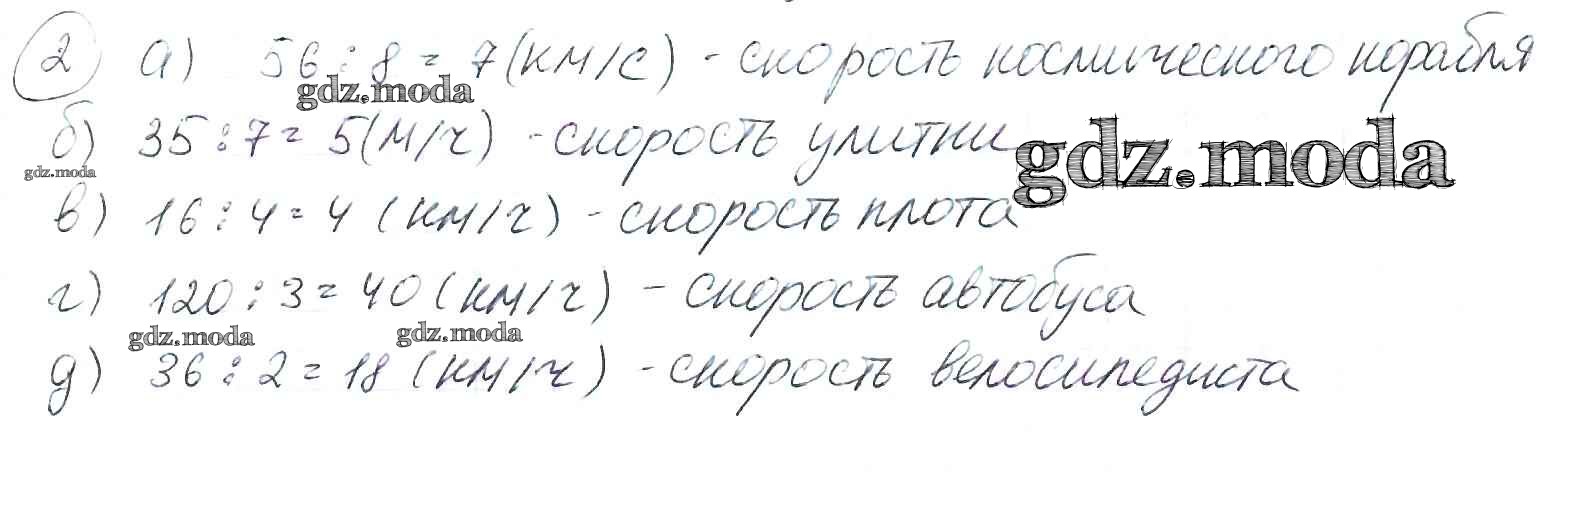 2 а) 56 : 8 = 7 (км/с) - скорость космического корабля
gdz.moda
б) 35 : 7 = 5 (м/ч) - скорость улитки
gdz.moda
gdz.moda
в) 16 : 4 = 4 (км/ч) - скорость плота
г) 120 : 3 = 40 (км/ч) - скорость автобуса
gdz.moda gdz.moda
д) 36 : 2 = 18 (км/ч) - скорость велосипедиста